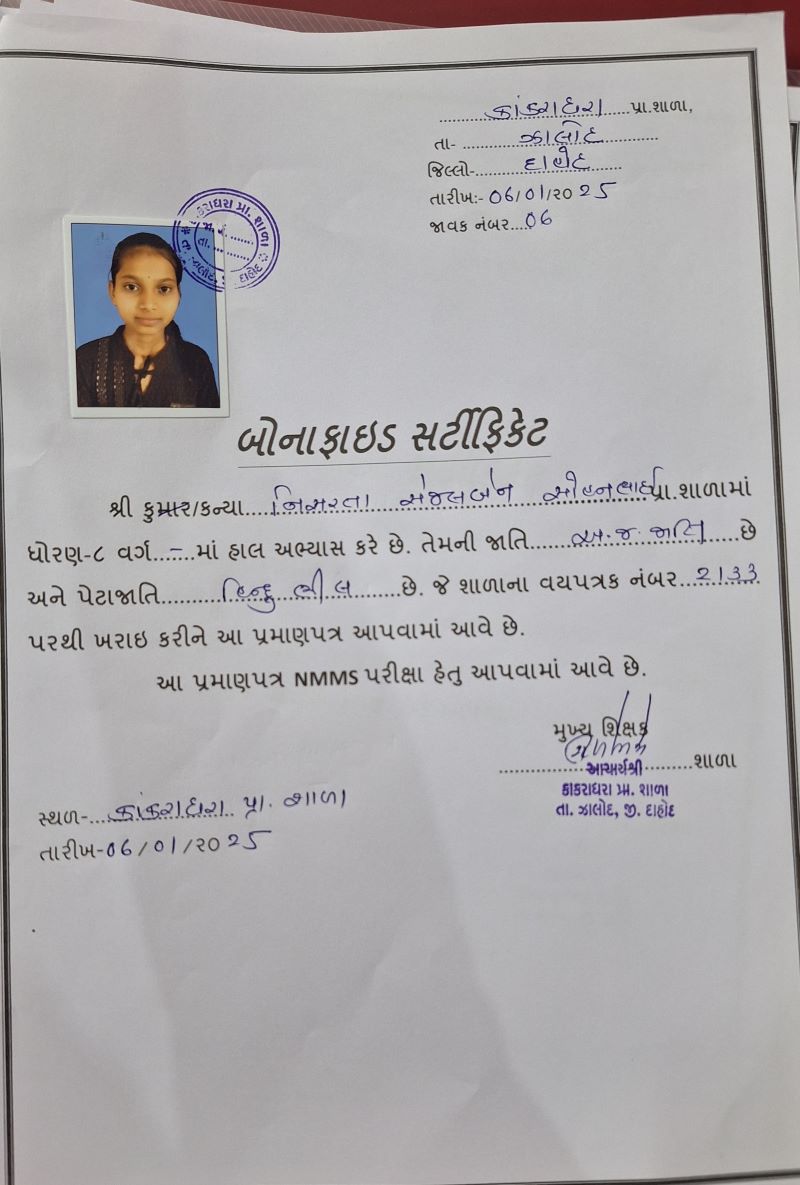 કાંકરાધરા પ્રા.શાળા,
તા- ઝાલોદ
જિલ્લો- દાહોદ
તારીખ:- 06/01/૨૦25
જાવક નંબર....06
કાકરાધરા પ્રા. શાળા
તા. ........
ઝાલોદ, દાહોદ
બોનાફાઇડ સર્ટીફિકેટ
શ્રી કુમાર/કન્યા....નિસરતા સેજલબેન મોહનભાઈ પ્રા.શાળામાં
ધોરણ-૮ વર્ગ...–...માં હાલ અભ્યાસ કરે છે. તેમની જાતિ....અ.જ.જાતિ....છે
અને પેટાજાતિ.......હિન્દુ ભીલ.......છે. જે શાળાના વયપત્રક નંબર..2133
પરથી ખરાઇ કરીને આ પ્રમાણપત્ર આપવામાં આવે છે.
આ પ્રમાણપત્ર NMMS પરીક્ષા હેતુ આપવામાં આવે છે.
મુખ્ય શિક્ષક
આચાર્યશ્રી ........શાળા
કાકરાધરા પ્રા. શાળા
તા. ઝાલોદ, જી. દાહોદ
સ્થળ-...કાંકરાધરા પ્રા. શાળા
તારીખ-06/01/૨૦25